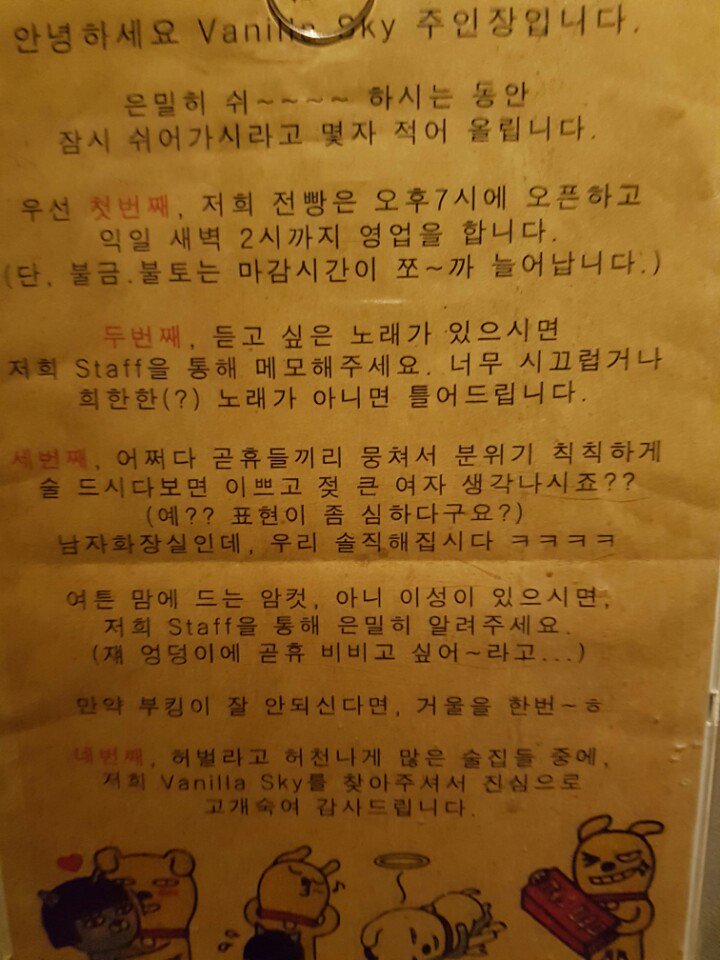 안녕하세요 Vanilla Sky 주인장입니다.
은밀히 쉬~~~~ 하시는 동안
잠시 쉬어가시라고 몇자 적어 올립니다.
우선 첫번째, 저희 전빵은 오후7시에 오픈하고
익일 새벽 2시까지 영업을 합니다.
(단, 불금.불토는 마감시간이 쪼~까 늘어납니다.)
두번째, 듣고 싶은 노래가 있으시면
저희 Staff을 통해 메모해주세요. 너무 시끄럽거나
희한한(?) 노래가 아니면 틀어드립니다.
세번째, 어쩌다 곧휴들끼리 뭉쳐서 분위기 칙칙하게
술 드시다보면 이쁘고 젖 큰 여자 생각나시죠??
(예?? 표현이 좀 심하다구요?)
남자화장실인데, 우리 솔직해집시다 ㅋㅋㅋㅋ
여튼 맘에 드는 암컷, 아니 이성이 있으시면,
저희 Staff을 통해 은밀히 알려주세요.
(쟤 엉덩이에 곧휴 비비고 싶어~라고...)
만약 부킹이 잘 안되신다면, 거울을 한번~ㅎ
네번째, 허벌라고 허천나게 많은 술집들 중에,
저희 Vanilla Sky를 찾아주셔서 진심으로
고개숙여 감사드립니다.